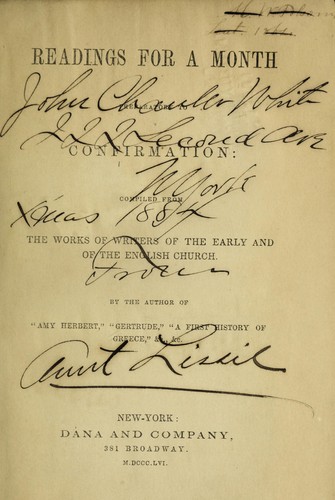 READINGS FOR A MONTH
PREPARATORY TO
John Chandler White
222 Second Ave
CONFIRMATION:
N York
COMPILED FROM
Xmas 1884
THE WORKS OF WRITERS OF THE EARLY AND
OF THE ENGLISH CHURCH.
From
BY THE AUTHOR OF
"AMY HERBERT," "GERTRUDE," "A FIRST HISTORY OF
GREECE," &c., &c.
Aunt Lissie
NEW-YORK:
DANA AND COMPANY,
381 BROADWAY.
M.DCCC.LVI.